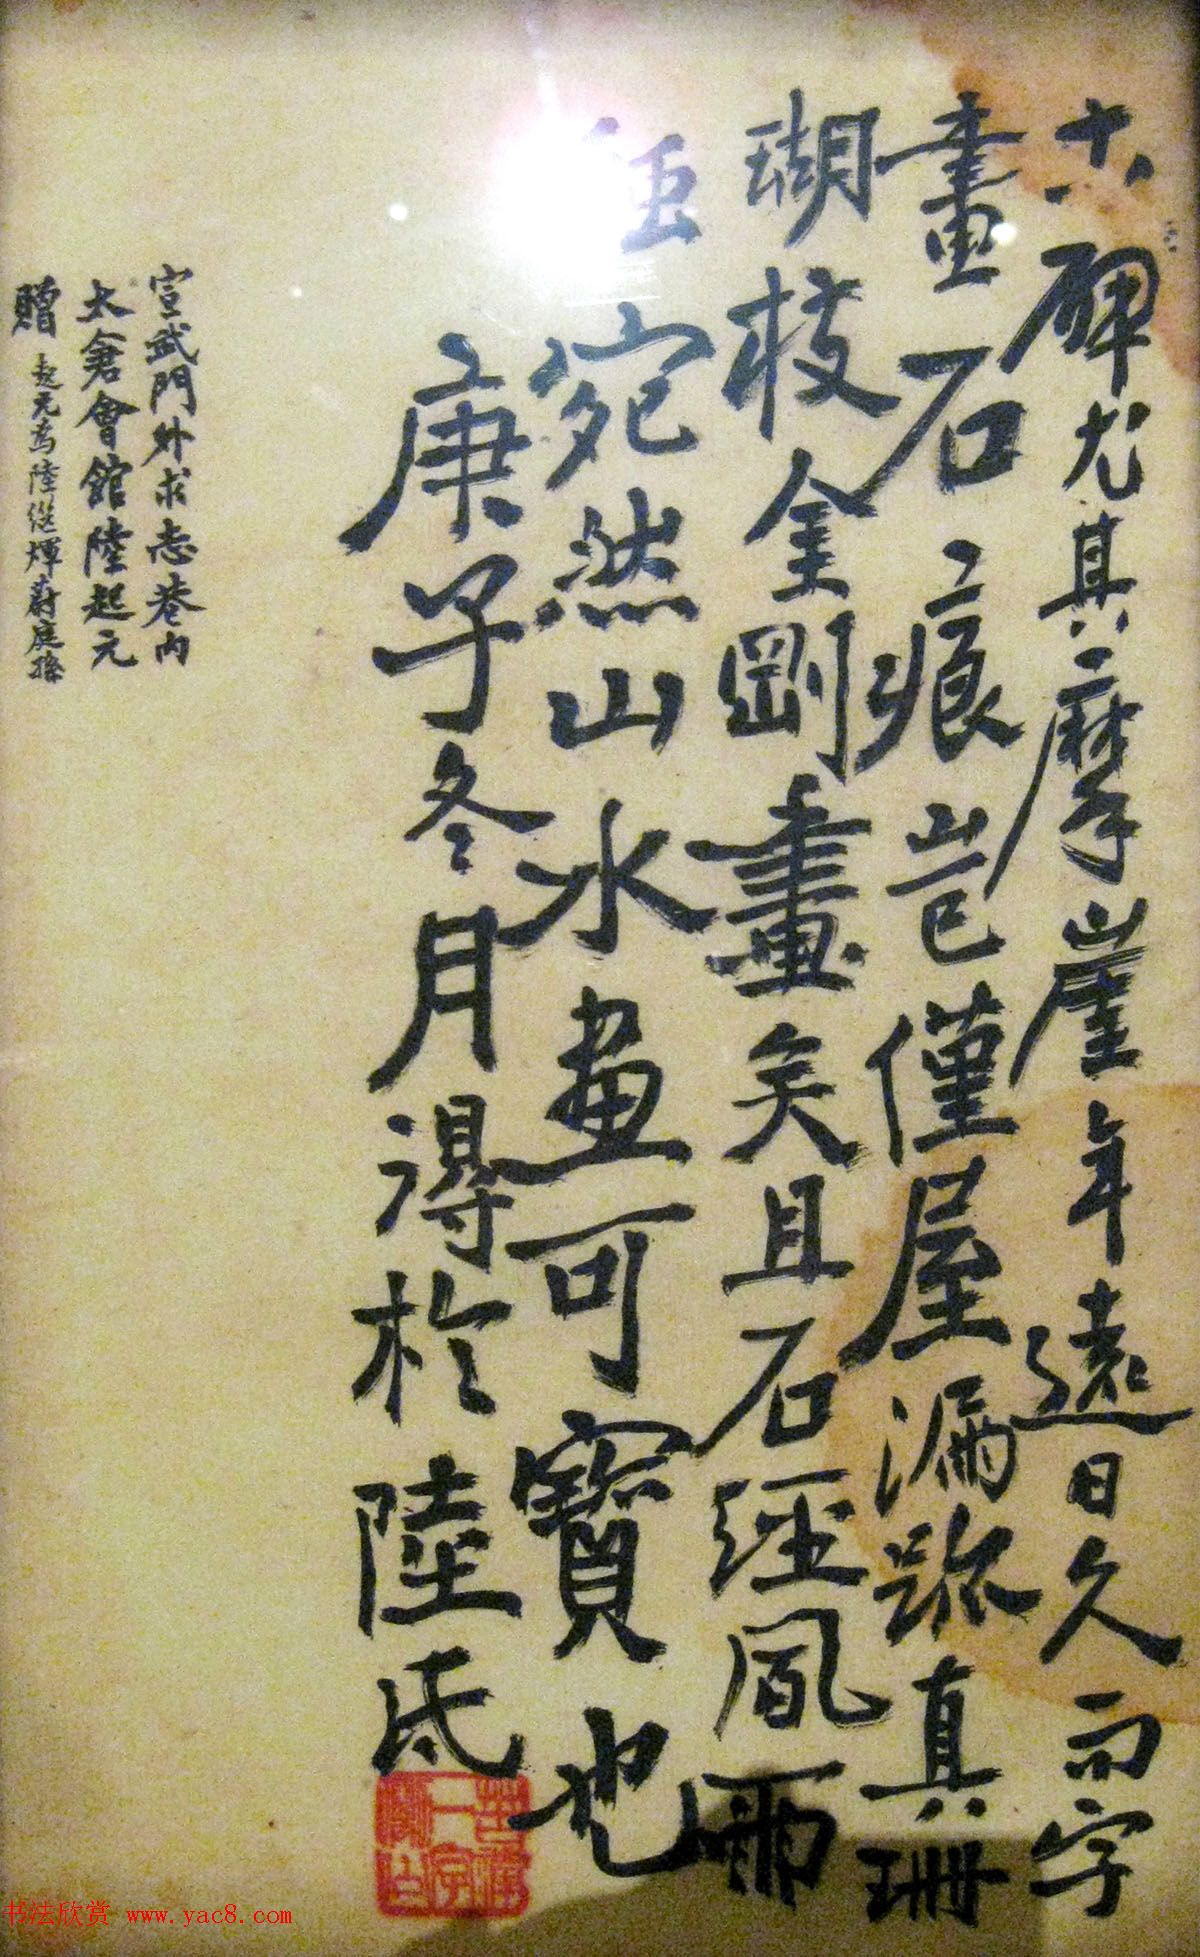 六碑尤其摩崖年遠日久而字
畫石痕豈僅屋漏跡真珊
瑚枝金剛畫矣且石經風雨
宛然山水畫可寶也
庚子冬月得於陸氏
宣武門外求志巷內
太倉會館陸起元
贈 起元為陸繼煇蔚庭孫
书法欣赏 www.yac8.com